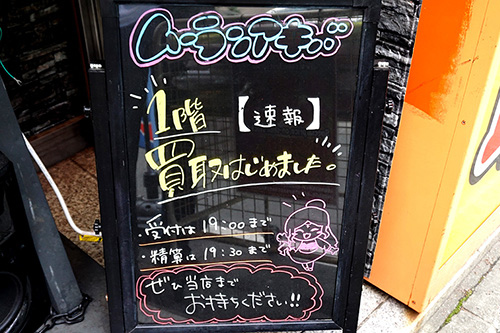 ムーランアキバ
1階
【速報】
買取はじめました。
・受付は19:00まで
・精算は19:30まで
ぜひ当店まで
お持ちください!!